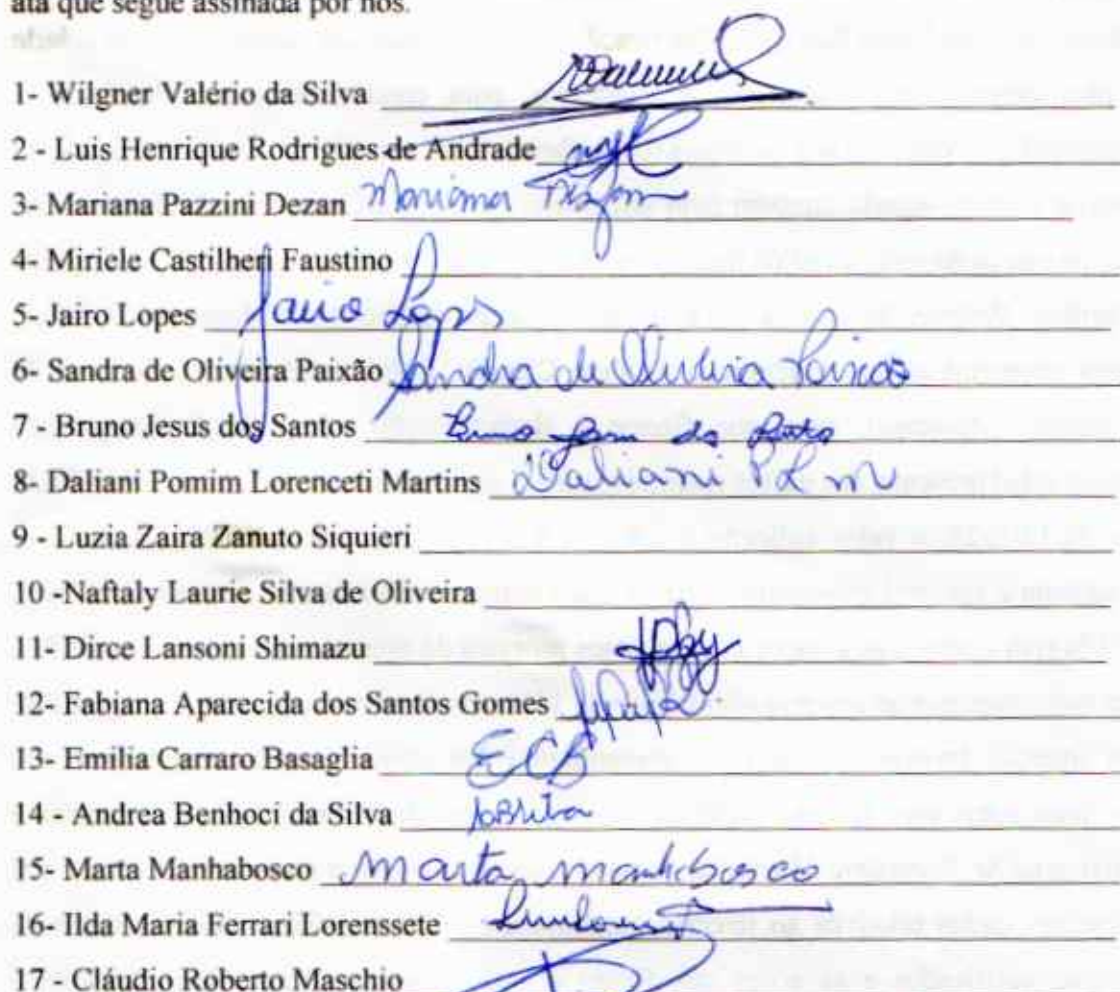 ata que segue assinada por nós.
1- Wilgner Valério da Silva
2 - Luis Henrique Rodrigues de Andrade
3- Mariana Pazzini Dezan Mariana Dezan
4- Miriele Castilheri Faustino
5- Jairo Lopes Jairo Lopes
6- Sandra de Oliveira Paixão Sandra de Oliveira Paixão
7 - Bruno Jesus dos Santos Bruno Jesus dos Santos
8- Daliani Pomim Lorenceti Martins Daliani P L M
9 - Luzia Zaira Zanuto Siquieri
10 -Naftaly Laurie Silva de Oliveira
11- Dirce Lansoni Shimazu
12- Fabiana Aparecida dos Santos Gomes
13- Emilia Carraro Basaglia ECB
14 - Andrea Benhoci da Silva
15- Marta Manhabosco Marta Manhabosco
16- Ilda Maria Ferrari Lorenssete
17 - Cláudio Roberto Maschio